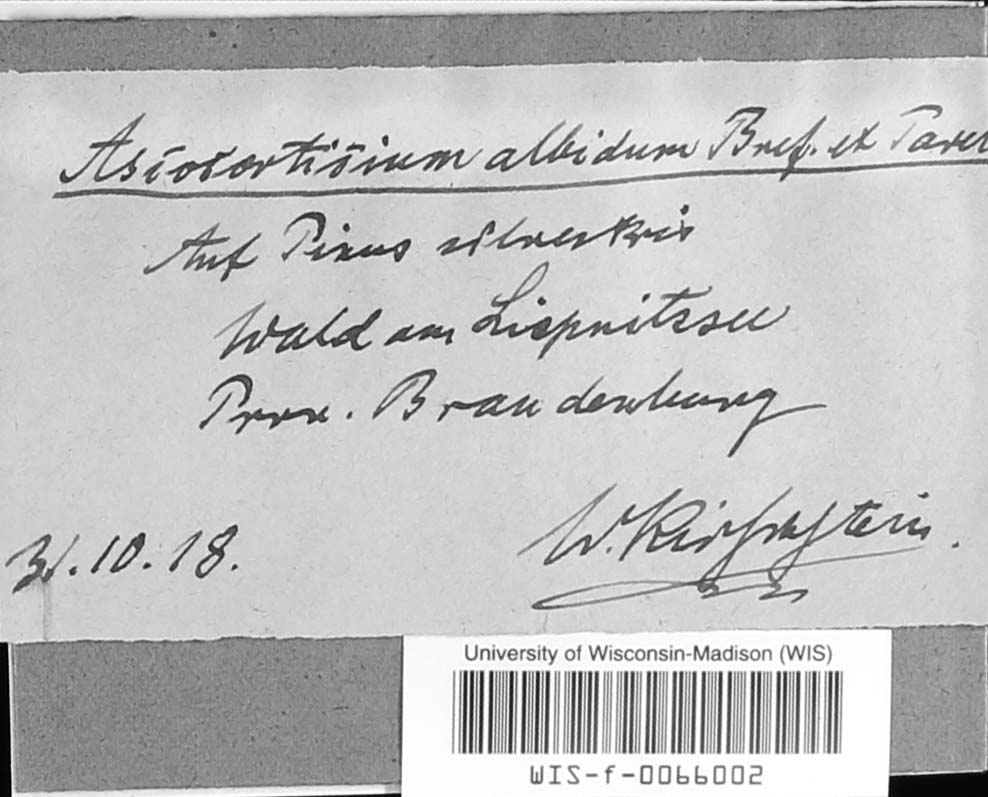 Ascocorticium albidum Bref. et Tavel
Auf Pinus silvestris
Wald am Liepnitzsee
Prov. Brandenburg
31.10.18.
W. Kirschstein.
University of Wisconsin-Madison (WIS)
WIS-f-0066002